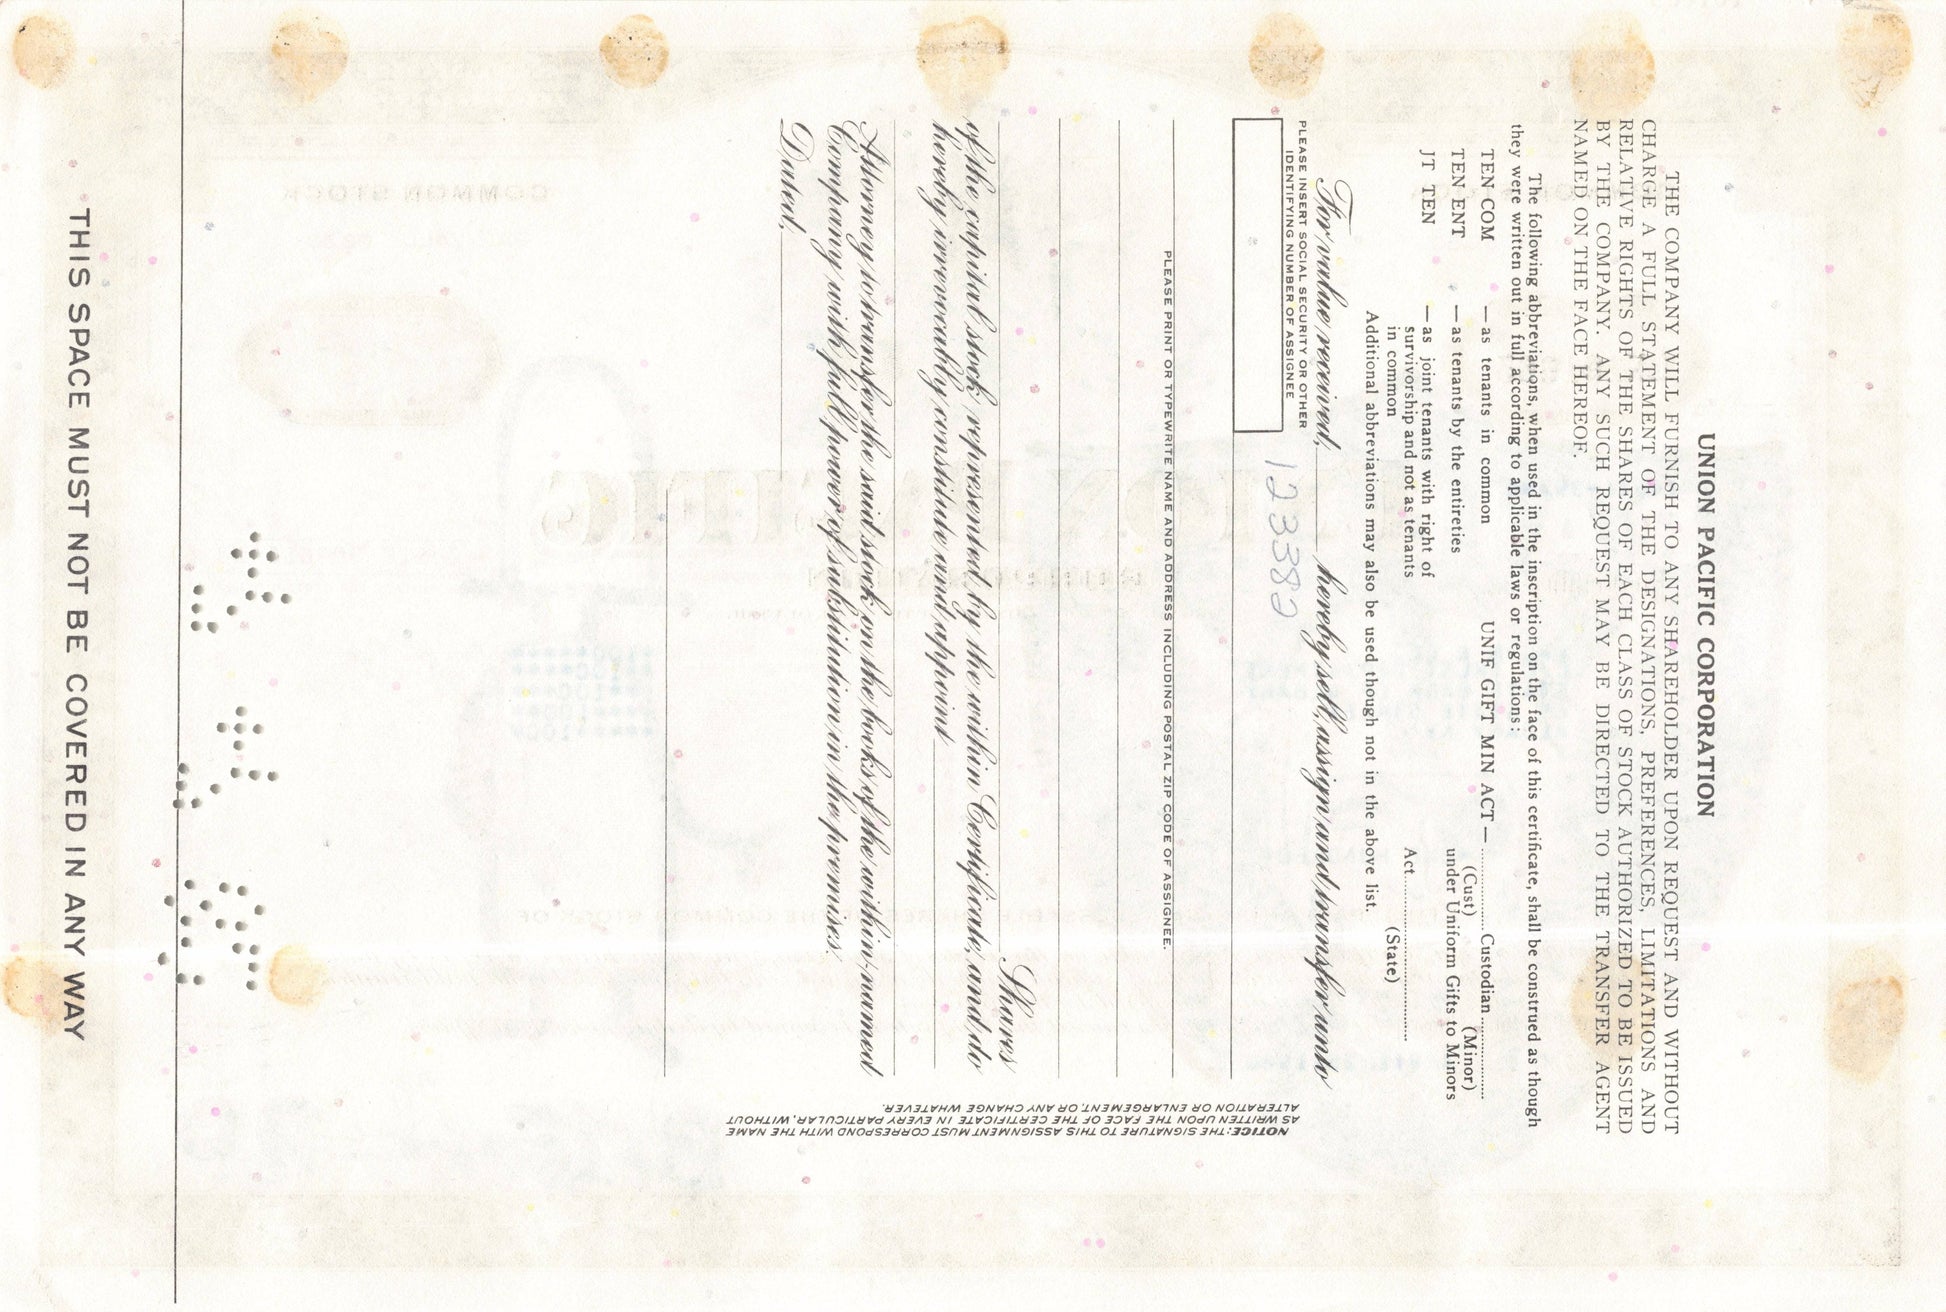 UNION PACIFIC CORPORATION
THE COMPANY WILL FURNISH TO ANY SHAREHOLDER UPON REQUEST AND WITHOUT
CHARGE A FULL STATEMENT OF THE DESIGNATIONS, PREFERENCES, LIMITATIONS AND
RELATIVE RIGHTS OF THE SHARES OF EACH CLASS OF STOCK AUTHORIZED TO BE ISSUED
BY THE COMPANY. ANY SUCH REQUEST MAY BE DIRECTED TO THE TRANSFER AGENT
NAMED ON THE FACE HEREOF.
The following abbreviations, when used in the inscription on the face of this certificate, shall be construed as though
they were written out in full according to applicable laws or regulations:
TEN COM — as tenants in common
TEN ENT — as tenants by the entireties
JT TEN — as joint tenants with right of
survivorship and not as tenants
in common
UNIF GIFT MIN ACT — .......... Custodian ..........
(Cust) (Minor)
under Uniform Gifts to Minors
Act ....................
(State)
Additional abbreviations may also be used though not in the above list.
For value received, ________ hereby sell, assign and transfer unto
PLEASE INSERT SOCIAL SECURITY OR OTHER
IDENTIFYING NUMBER OF ASSIGNEE
123382
PLEASE PRINT OR TYPEWRITE NAME AND ADDRESS INCLUDING POSTAL ZIP CODE OF ASSIGNEE.
Shares
of the capital stock represented by the within Certificate, and do
hereby irrevocably constitute and appoint
Attorney to transfer the said stock on the books of the within-named
Company with full power of substitution in the premises.
Dated,
NOTICE: THE SIGNATURE TO THIS ASSIGNMENT MUST CORRESPOND WITH THE NAME
AS WRITTEN UPON THE FACE OF THE CERTIFICATE IN EVERY PARTICULAR, WITHOUT
ALTERATION OR ENLARGEMENT, OR ANY CHANGE WHATEVER.
THIS SPACE MUST NOT BE COVERED IN ANY WAY